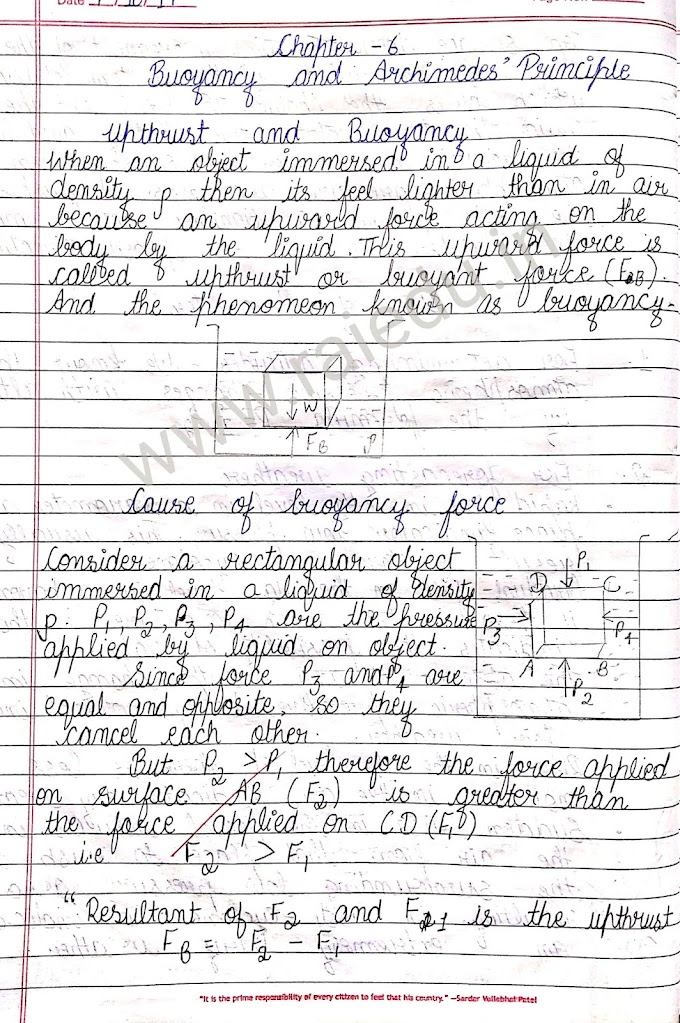 Date
Chapter - 6
Buoyancy and Archimedes' Principle
Upthrust and Buoyancy
When an object immersed in a liquid of
density ρ then its feel lighter than in air
because an upward force acting on the
body by the liquid. This upward force is
called upthrust or buoyant force (FB).
And the phenomeon known as buoyancy.
W
FB ρ
www.raiedu.in
Cause of buoyancy force
Consider a rectangular object
immersed in a liquid of density
ρ. P1, P2, P3, P4 are the pressure
applied by liquid on object.
Since force P3 and P4 are
equal and opposite, so they
cancel each other.
P1
D C
P3 P4
A B
P2
But P2 > P1 therefore the force applied
on surface AB (F2) is greater than
the force applied on CD (F1)
i.e F2 > F1
"Resultant of F2 and F1 is the upthrust
FB = F2 - F1
"It is the prime responsibility of every citizen to feel that his country." —Sardar Vallabhbhai Patel